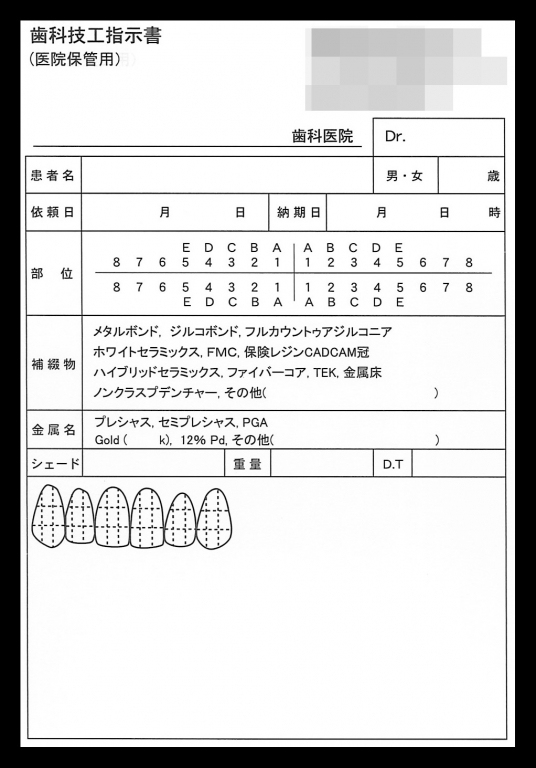 歯科技工指示書
(医院保管用)
歯科医院 Dr.
患者名 男・女 歳
依頼日 月 日 納期日 月 日 時
E D C B A A B C D E
8 7 6 5 4 3 2 1 1 2 3 4 5 6 7 8
部 位
8 7 6 5 4 3 2 1 1 2 3 4 5 6 7 8
E D C B A A B C D E
メタルボンド, ジルコボンド, フルカウントゥアジルコニア
ホワイトセラミックス, FMC, 保険レジンCADCAM冠
補綴物
ハイブリッドセラミックス, ファイバーコア, TEK, 金属床
ノンクラスプデンチャー, その他( )
プレシャス, セミプレシャス, PGA
金属名
Gold ( k), 12% Pd, その他( )
シェード 重量 D.T